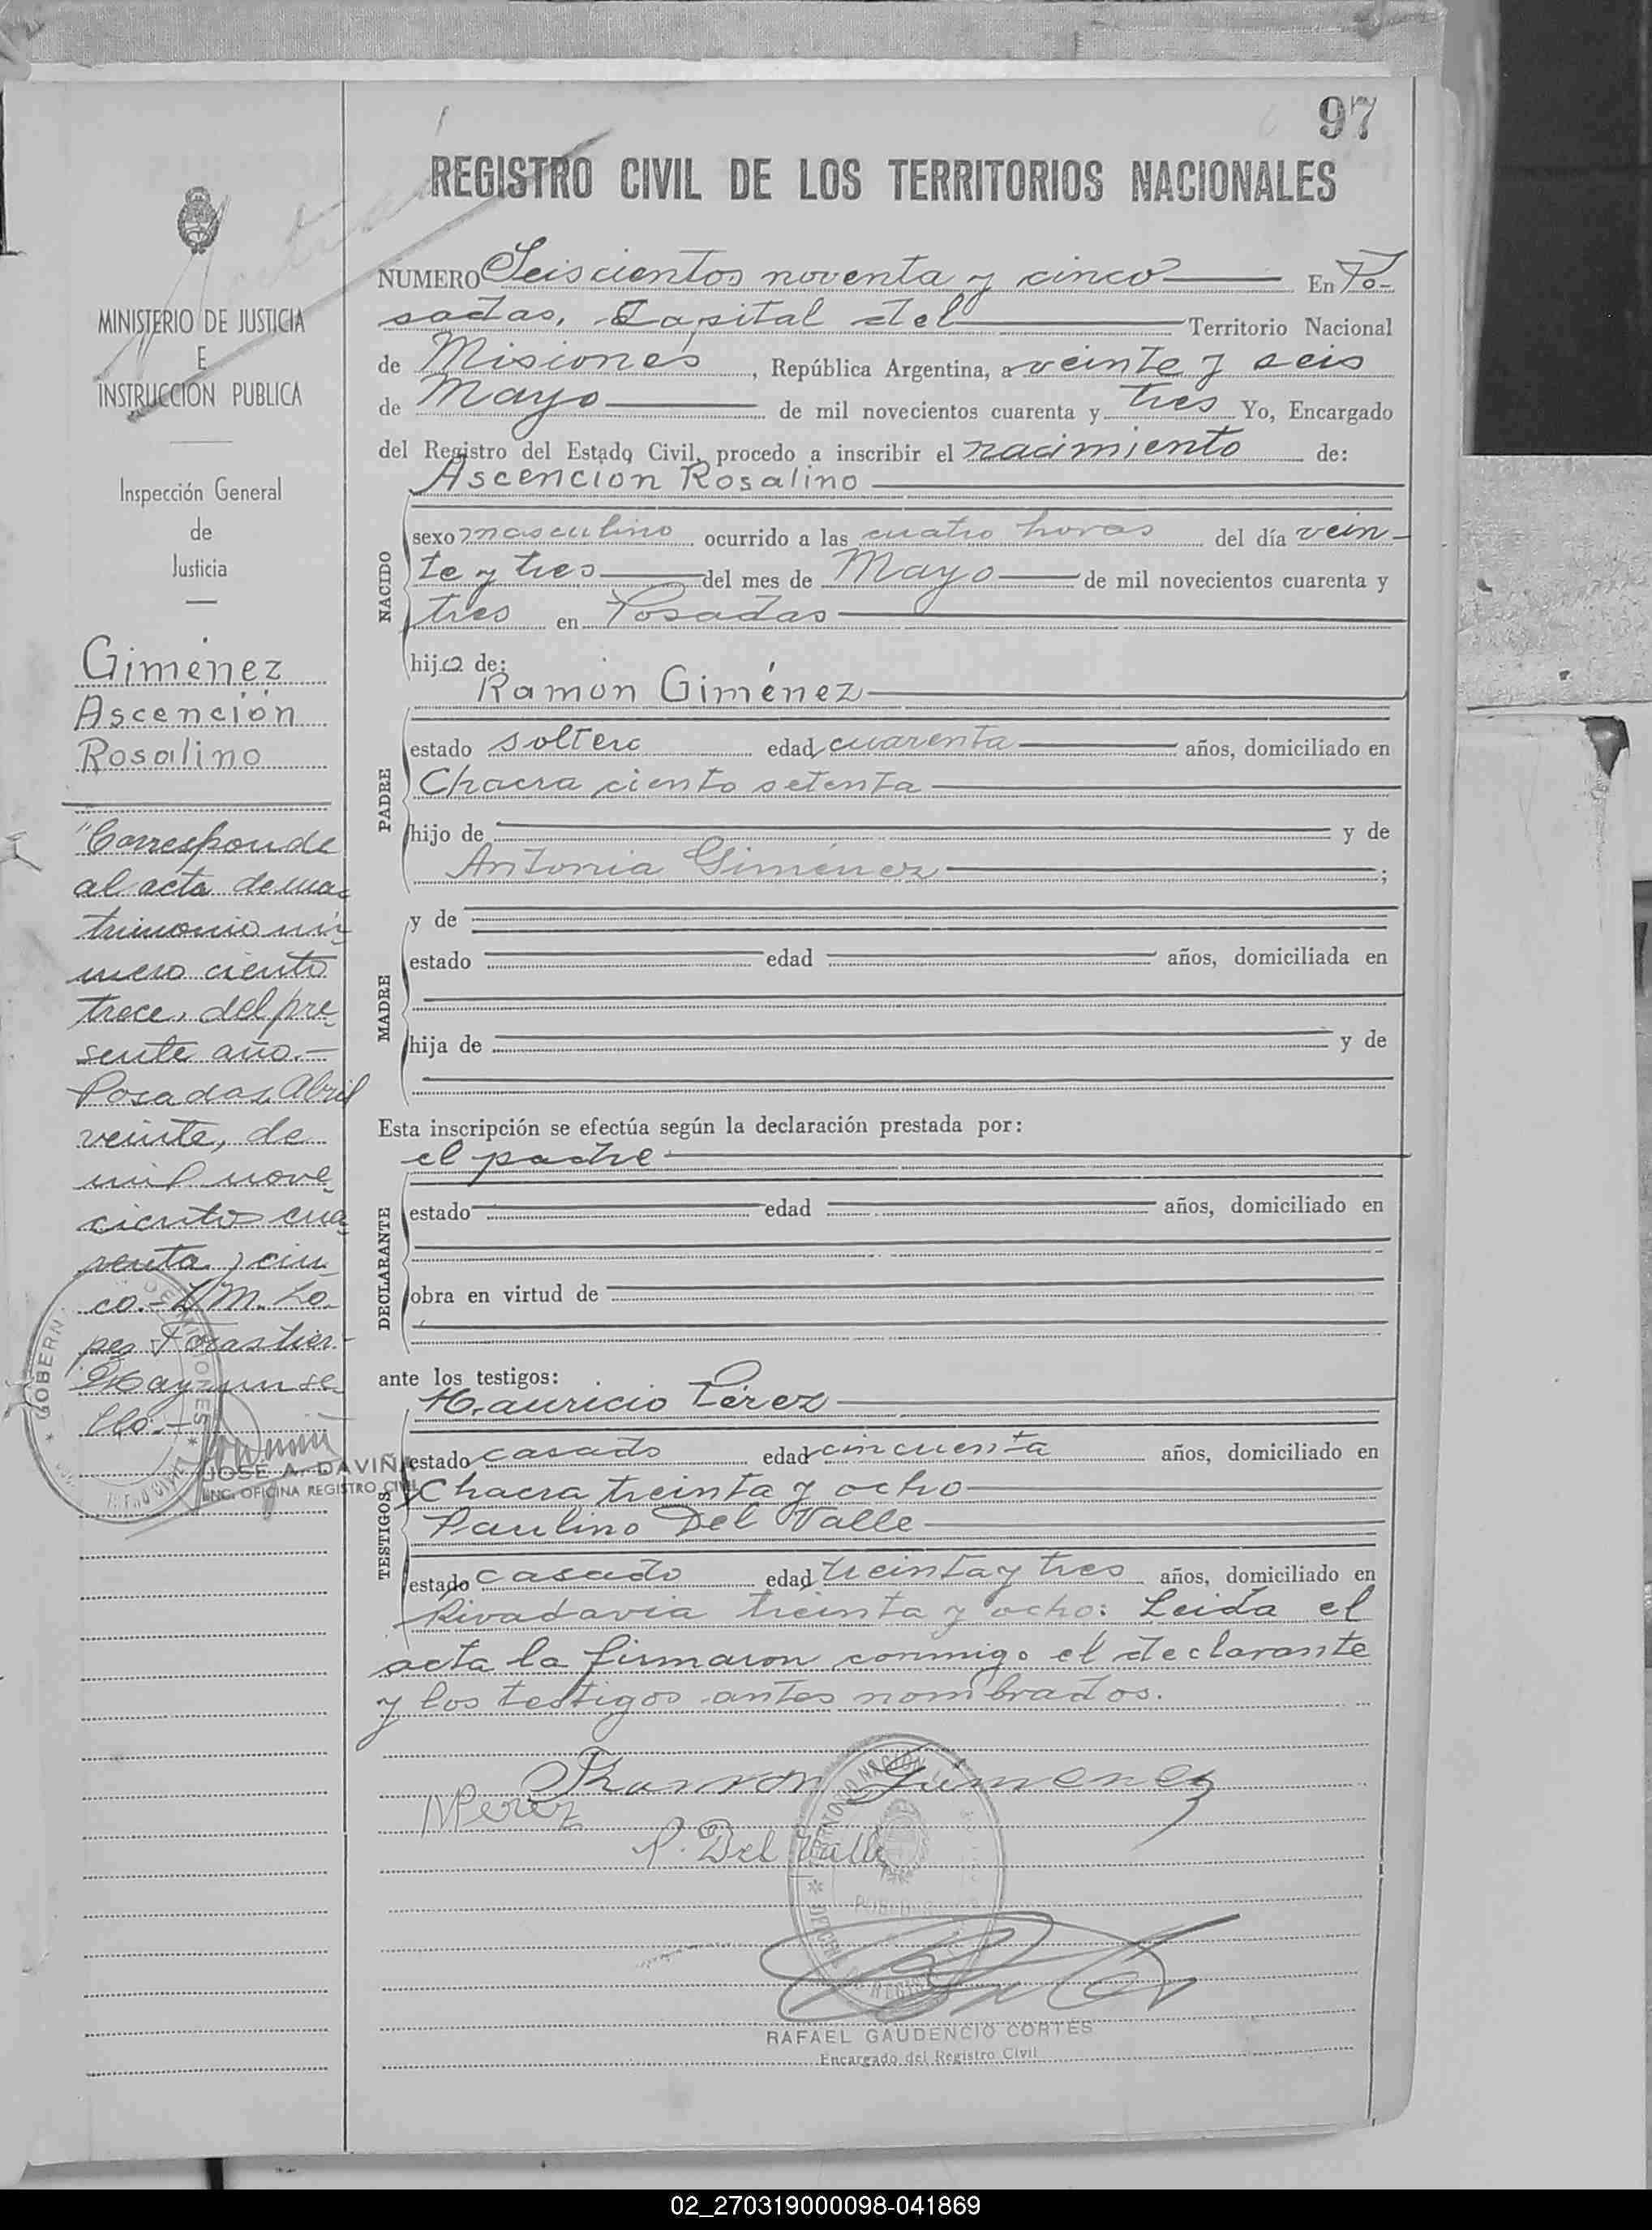 97
REGISTRO CIVIL DE LOS TERRITORIOS NACIONALES
MINISTERIO DE JUSTICIA
E
INSTRUCCION PUBLICA
Inspección General
de
Justicia
Giménez
Ascención
Rosalino
"Corresponde
al acta de ma-
trimonio nú-
mero ciento
trece, del pre-
sente año.-
Posadas, Abril
veinte, de
mil nove-
cientos cua-
renta y cin-
co.- M. Lo-
pez Forastier.
Hay un se-
llo.-
GOBERN
JOSÉ A. DAVIÑA
ENC. OFICINA REGISTRO CIVIL
NUMERO Seiscientos noventa y cinco En Po-
sadas, Capital del Territorio Nacional
de Misiones, República Argentina, a veinte y seis
de Mayo de mil novecientos cuarenta y tres Yo, Encargado
del Registro del Estado Civil, procedo a inscribir el nacimiento de:
Ascención Rosalino
NACIDO
sexo masculino ocurrido a las cuatro horas del día vein-
te y tres del mes de Mayo de mil novecientos cuarenta y
tres en Posadas
hijo de:
Ramón Giménez
PADRE
estado soltero edad cuarenta años, domiciliado en
Chacra ciento setenta
hijo de y de
Antonia Giménez ;
MADRE
y de
estado edad años, domiciliada en
hija de y de
Esta inscripción se efectúa según la declaración prestada por:
el padre
DECLARANTE
estado edad años, domiciliado en
obra en virtud de
ante los testigos:
Mauricio Pérez
TESTIGOS
estado casado edad cincuenta años, domiciliado en
Chacra treinta y ocho
Paulino Del Valle
estado casado edad treinta y tres años, domiciliado en
Rivadavia treinta y ocho: Leida el
acta la firmaron conmigo el declarante
y los testigos antes nombrados.
Ramon Gimenez
MPerez
P. Del Valle
RAFAEL GAUDENCIO CORTÉS
Encargado del Registro Civil
02_270319000098-041869